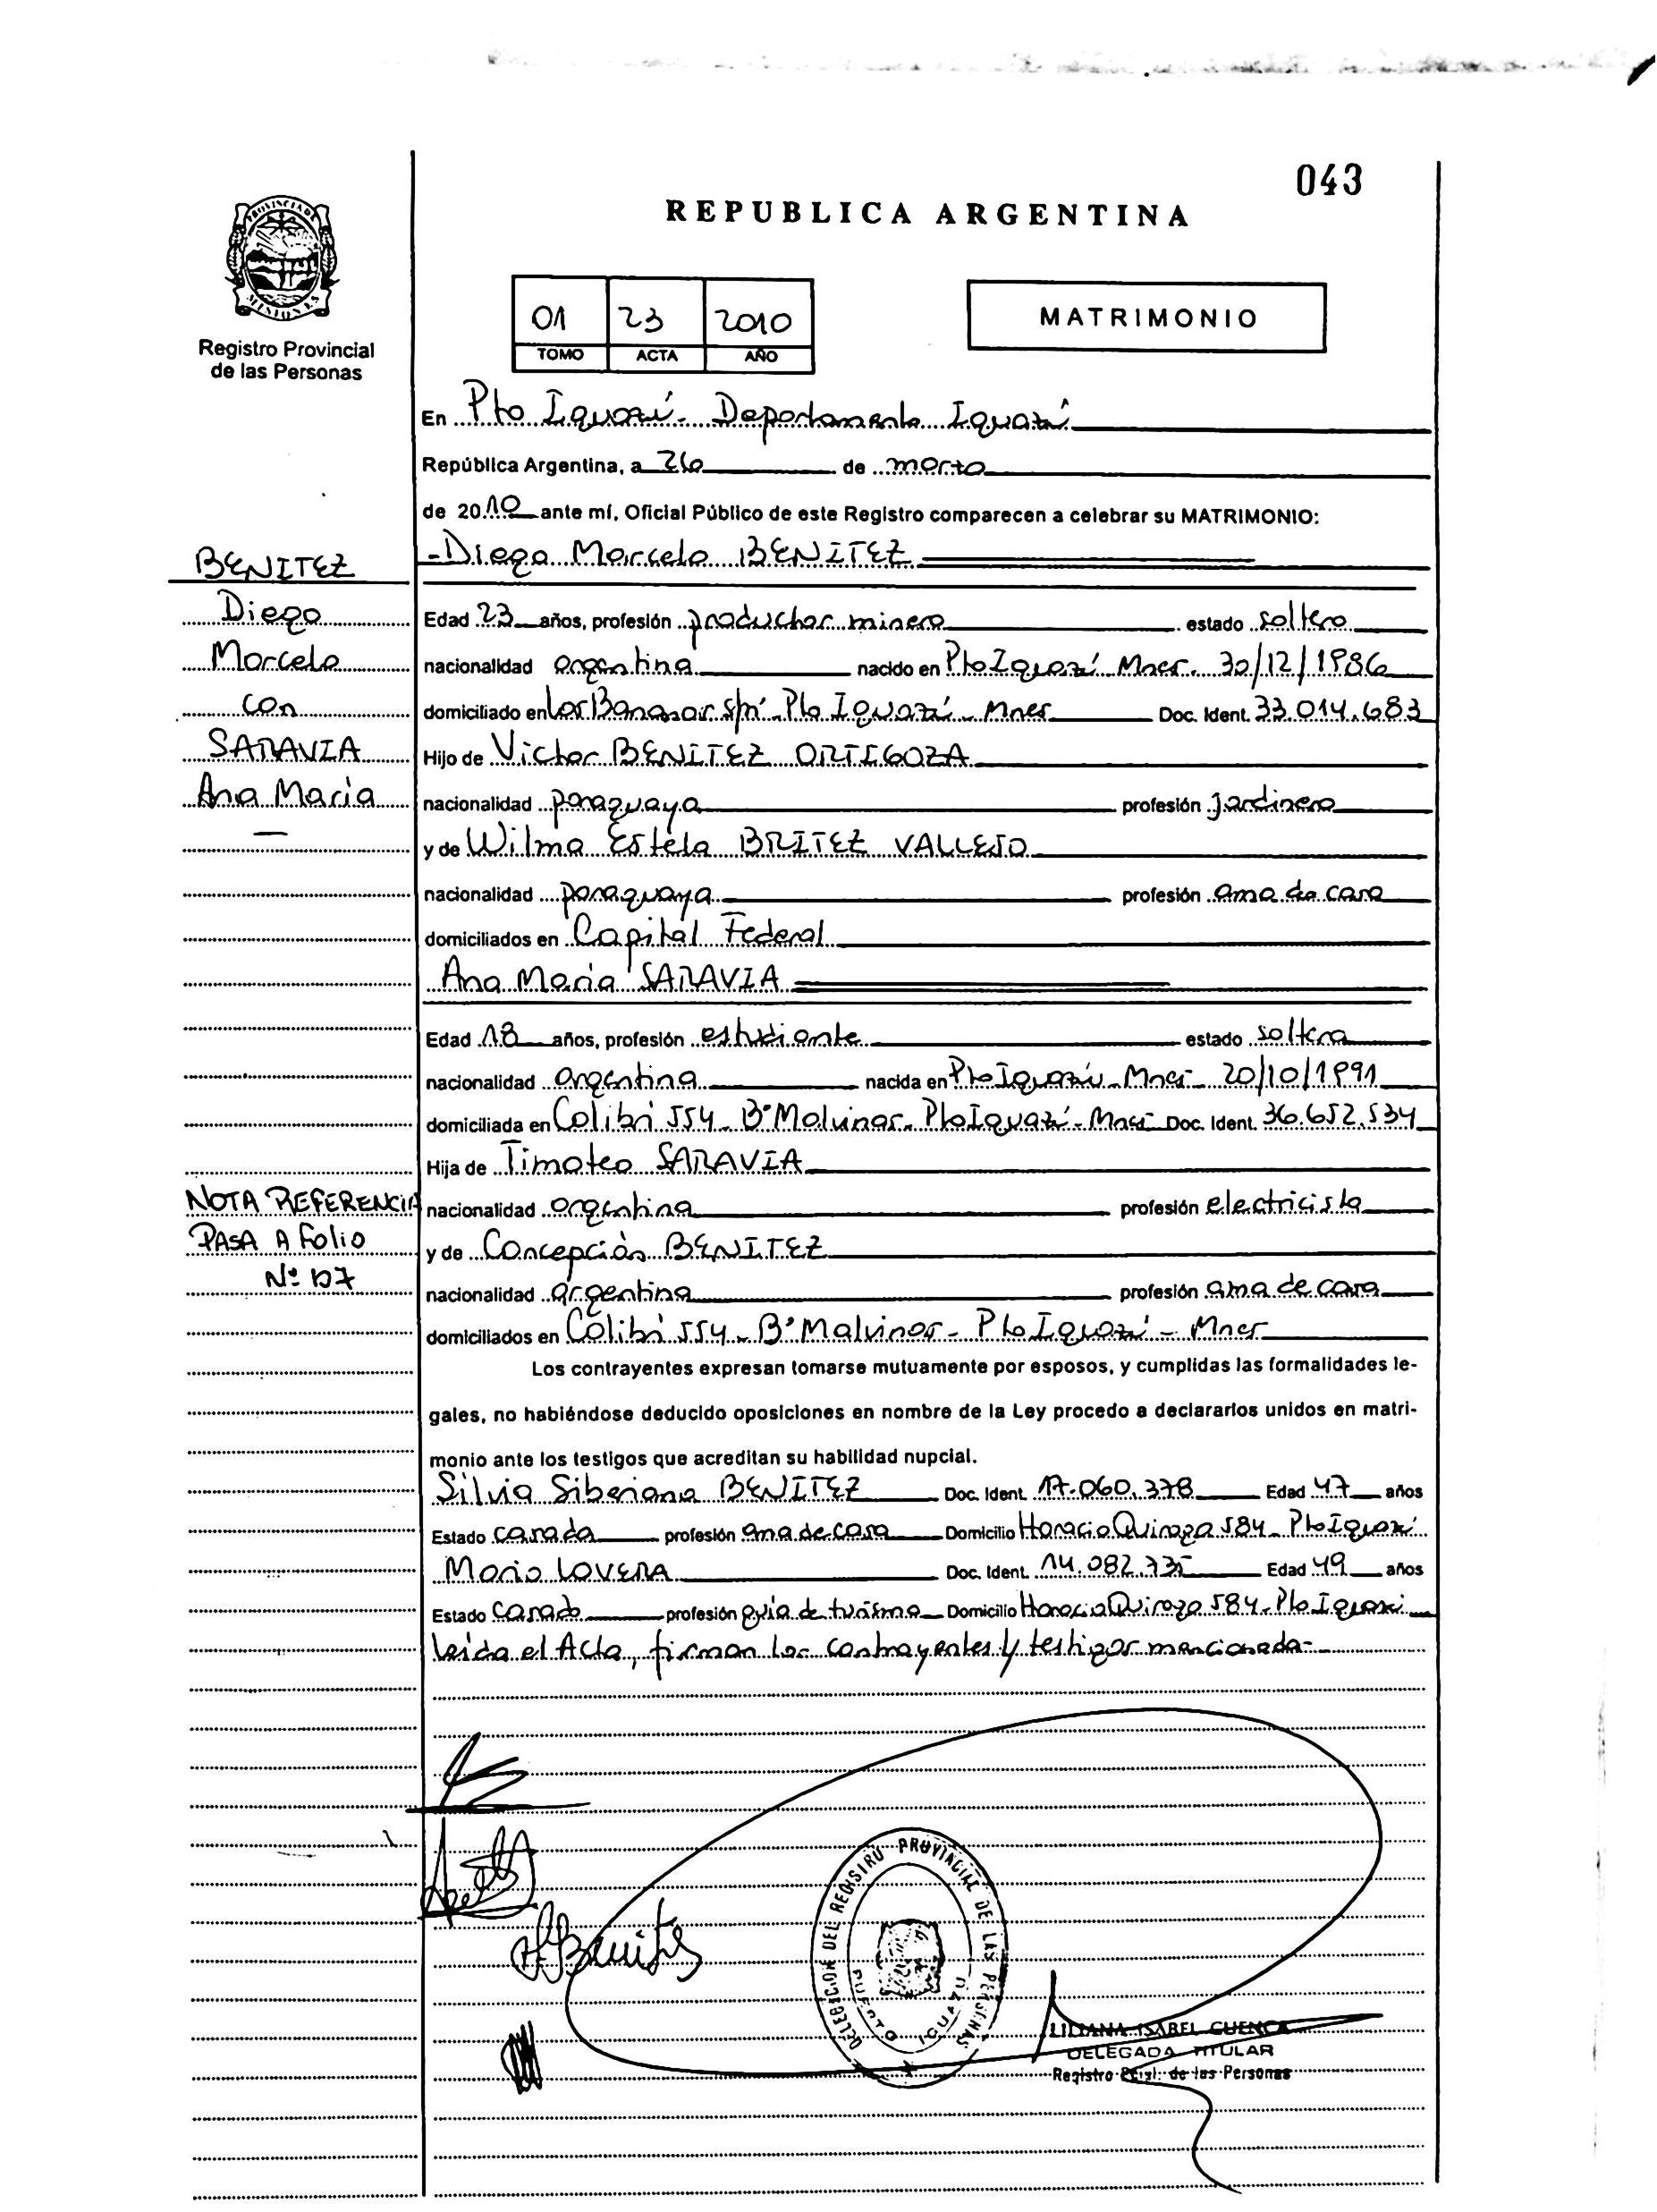 043
REPUBLICA ARGENTINA
PROVINCIA DE
MISIONES
Registro Provincial
de las Personas
01 23 2010
TOMO ACTA AÑO
MATRIMONIO
En Pto Iguazú - Departamento Iguazú
República Argentina, a 26 de marzo
de 2010 ante mí, Oficial Público de este Registro comparecen a celebrar su MATRIMONIO:
- Diego Marcelo BENITEZ
BENITEZ
Diego
Marcelo
con
SARAVIA
Ana Maria
Edad 23 años, profesión productor minero estado soltero
nacionalidad argentina nacido en Pto Iguazú Mnes. 30/12/1986
domiciliado en Las Bananas s/n - Pto Iguazú - Mnes Doc. Ident. 33.014.683
Hijo de Victor BENITEZ ORTIGOZA
nacionalidad paraguaya profesión jardinero
y de Wilma Estela BRITEZ VALLEJO
nacionalidad paraguaya profesión ama de casa
domiciliados en Capital Federal
Ana Maria SARAVIA
Edad 18 años, profesión estudiante estado soltera
nacionalidad argentina nacida en Pto Iguazú - Mnes - 20/10/1991
domiciliada en Colibrí 554 - Bº Malvinas - Pto Iguazú - Mnes - Doc. Ident. 36.652.534
Hija de Timoteo SARAVIA
nacionalidad argentina profesión electricista
y de Concepción BENITEZ
nacionalidad argentina profesión ama de casa
domiciliados en Colibrí 554 - Bº Malvinas - Pto Iguazú - Mnes
NOTA REFERENCIA
PASA A Folio
Nº 127
Los contrayentes expresan tomarse mutuamente por esposos, y cumplidas las formalidades le-
gales, no habiéndose deducido oposiciones en nombre de la Ley procedo a declararlos unidos en matri-
monio ante los testigos que acreditan su habilidad nupcial.
Silvia Siberiana BENITEZ Doc. Ident. 17.060.378 Edad 47 años
Estado casada profesión ama de casa Domicilio Horacio Quiroga 584 - Pto Iguazú
Mario LOVERA Doc. Ident. 14.082.735 Edad 49 años
Estado casado profesión guía de turismo Domicilio Horacio Quiroga 584 - Pto Iguazú
Leída el Acta, firman los contrayentes y testigos mencionados-
DELEGACION DEL REGISTRO PROVINCIAL DE LAS PERSONAS
PUERTO IGUAZU
LILIANA ISABEL CUENCA
DELEGADA TITULAR
Registro Pcial. de las Personas